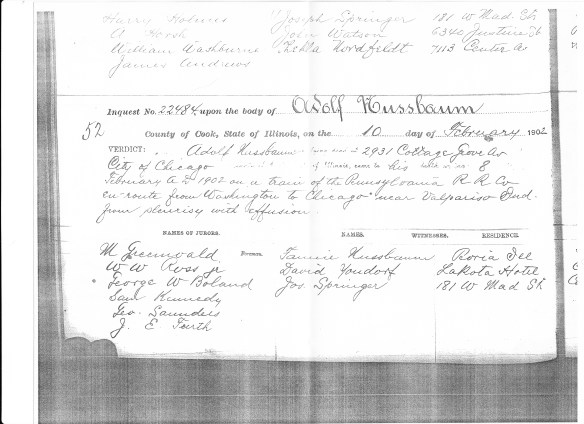 Harry Holmes Joseph Springer 181 W Mad. St
A John Watson 6340 Justine St
William Washburne Thekla Nordfeldt 7113 Center Av
James Andrews
Inquest No. 22484, upon the body of Adolf Nussbaum
52 County of Cook, State of Illinois, on the 10 day of February 1902
VERDICT: Adolf Nussbaum 2931 Cottage Grove Av
City of Chicago of Illinois, came to his 8
February A D 1902 on a train of the Pennsylvania R R Co
en-route from Washington to Chicago near Valpariso Ind
from pleurisy with effusion
NAMES OF JURORS. NAMES. WITNESSES. RESIDENCE.
M Greenwald Foreman. Nussbaum
W W Ross jr David Lakota Hotel
George W Boland Jos Springer 181 W Mad St
Saml Kennedy
Geo. Saunders
J. E.